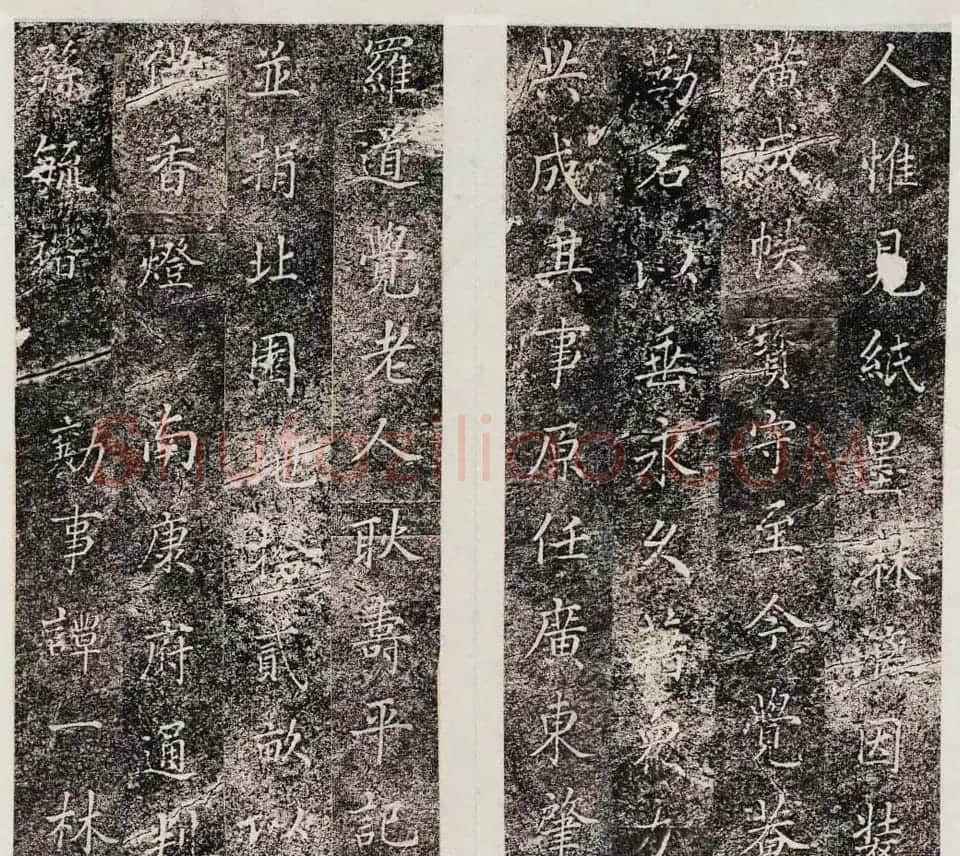 人惟見紙墨因裝
潢成帙寶守至今覺菴
勒石以垂永久
共成其事原任廣東肇
羅道覺老人耿壽平記
並捐北園地貳畝以
供香燈 南康府通判
孫毓 勷事譚一林
Shufaziliao.COM